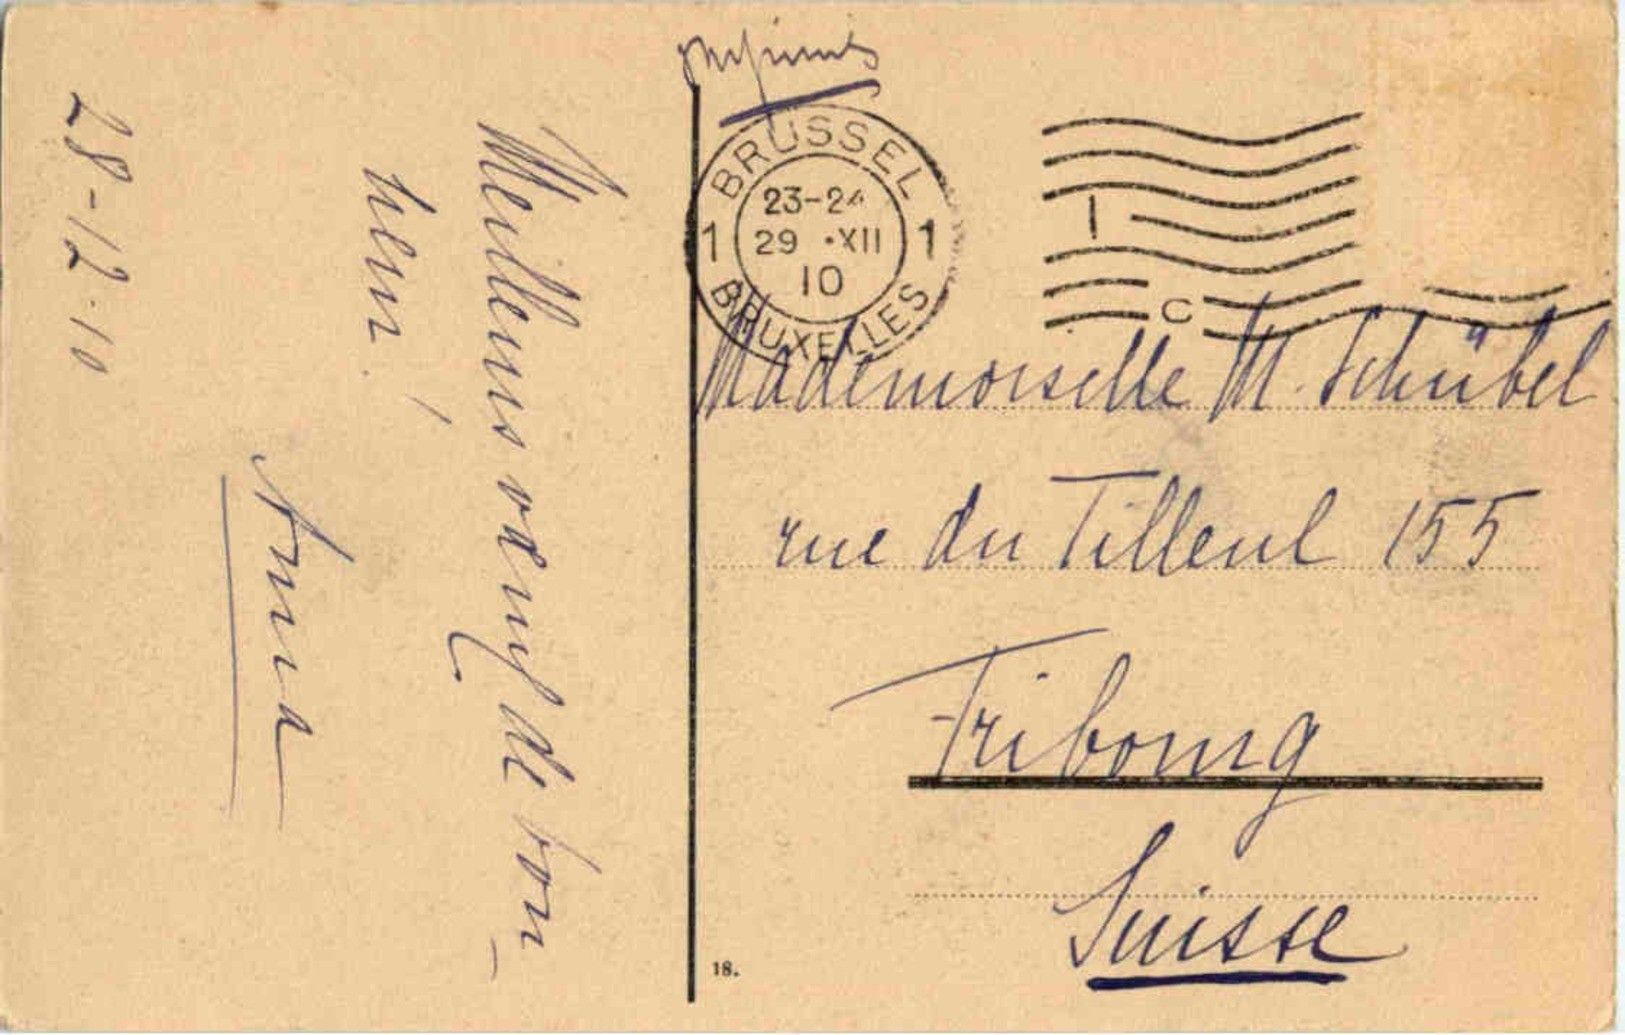 28-12-10
Meilleurs vœux de bon-
heur.
Anna
Imprimés
BRUSSEL
1 1
23-24
29 ·XII
10
BRUXELLES
1
C
Mademoiselle M. Schübel
rue du Tilleul 155
Fribourg
Suisse
18.